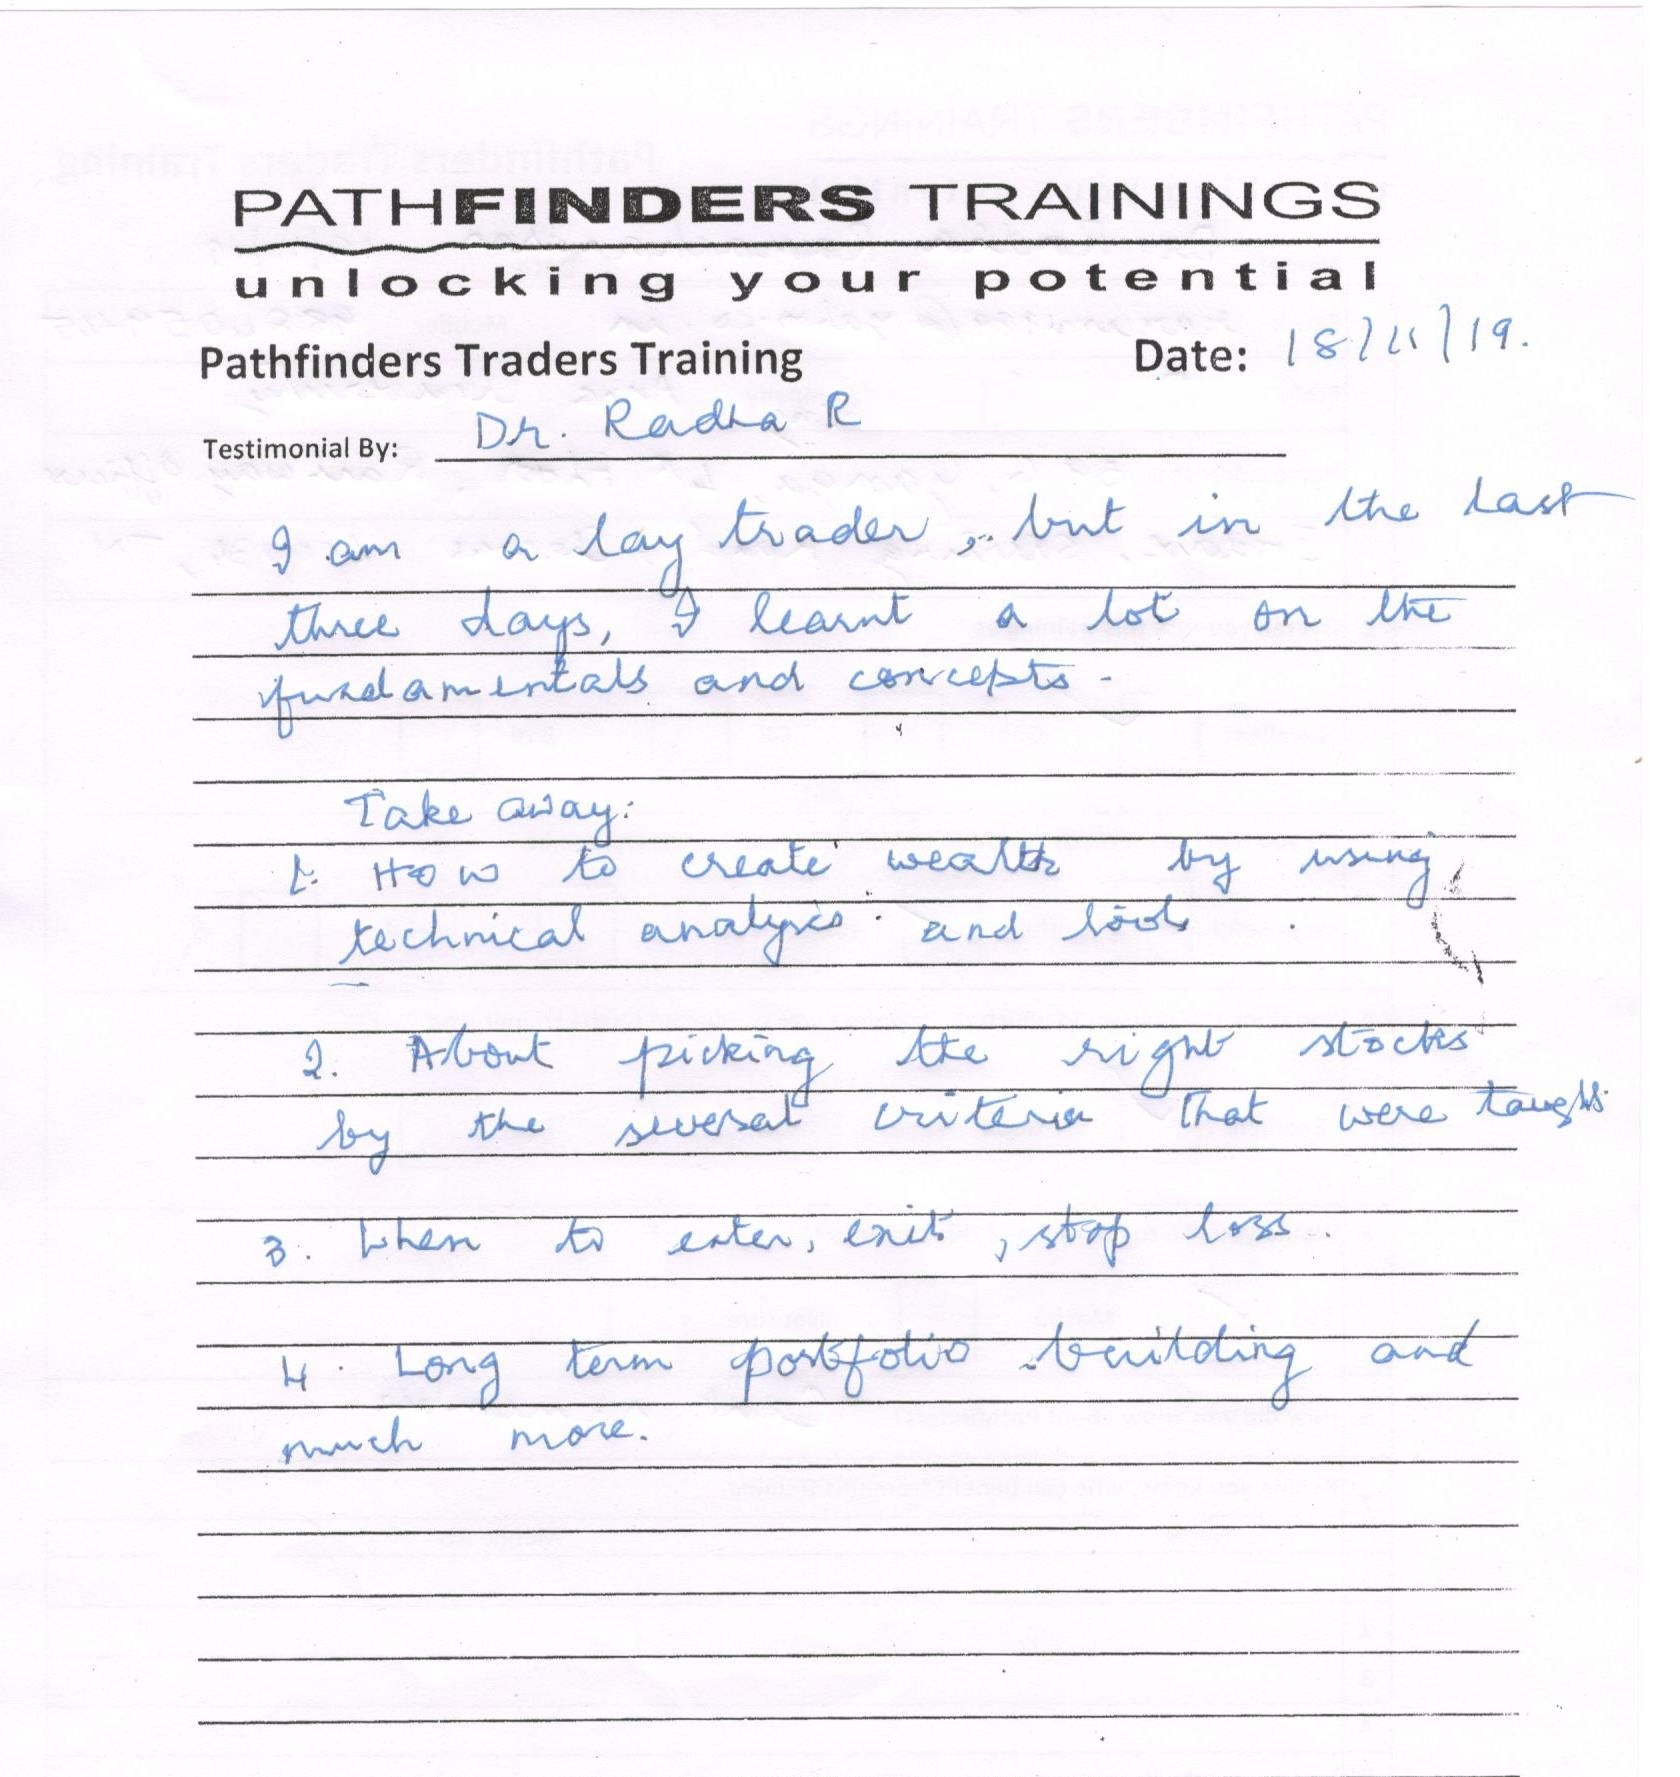 PATHFINDERS TRAININGS
unlocking your potential
Pathfinders Traders Training Date: 18/11/19.
Testimonial By: Dr. Radha R
I am a lay trader, but in the last
three days, I learnt a lot on the
fundamentals and concepts.
Take away:
1. How to create wealth by using
technical analysis and tools
2. About picking the right stocks
by the several criteria that were taught
3. When to enter, exit, stop loss.
4. Long term portfolio building and
much more.